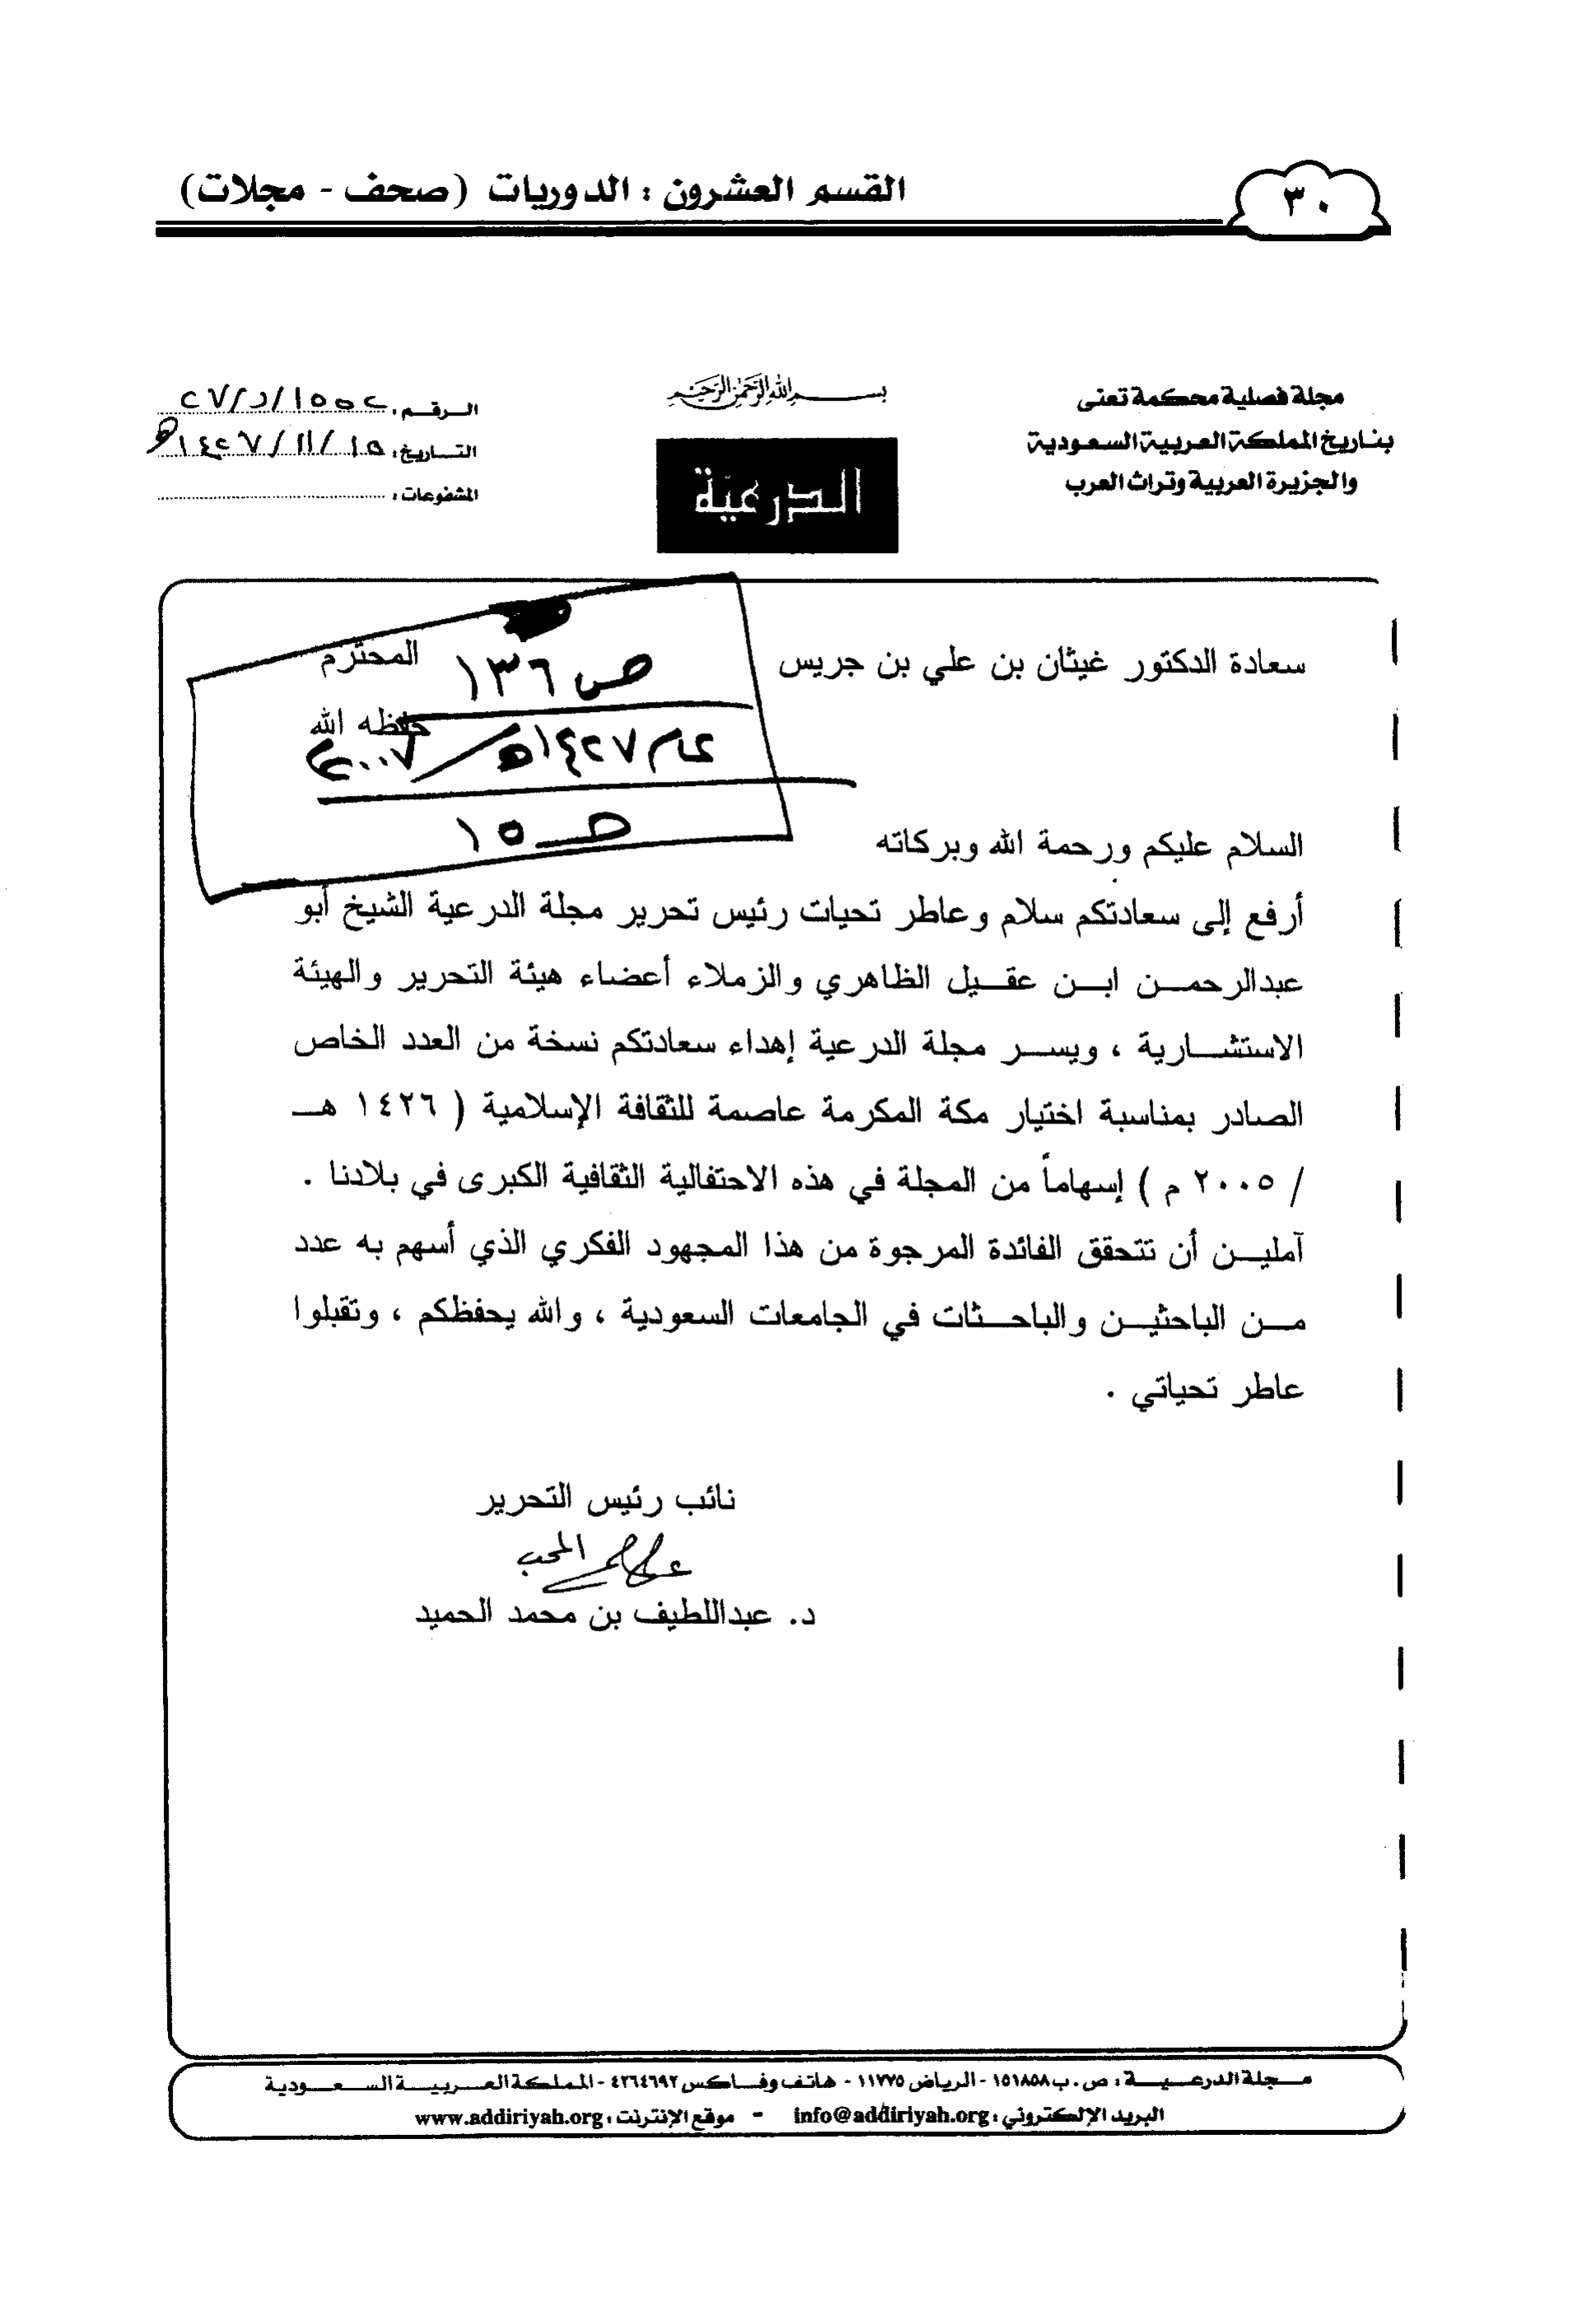 ٣٠
القسم العشرون : الدوريات (صحف - مجلات)
مجلة فصلية محكمة تعنى
بتاريخ المملكة العربية السعودية
والجزيرة العربية وتراث العرب
بسم الله الرحمن الرحيم
الدرعية
الرقم : ١٥٥٢/د/٢٧
التاريخ : ١٥/١١/١٤٢٧هـ
المشفوعات :
سعادة الدكتور غيثان بن علي بن جريس المحترم
حفظه الله
ص ١٣٦
عام ١٤٢٧هـ/٢٠٠٧م
ص ١٥
السلام عليكم ورحمة الله وبركاته
أرفع إلى سعادتكم سلام وعاطر تحيات رئيس تحرير مجلة الدرعية الشيخ أبو
عبدالرحمن ابن عقيل الظاهري والزملاء أعضاء هيئة التحرير والهيئة
الاستشارية ، ويسر مجلة الدرعية إهداء سعادتكم نسخة من العدد الخاص
الصادر بمناسبة اختيار مكة المكرمة عاصمة للثقافة الإسلامية ( ١٤٢٦ هـ
/ ٢٠٠٥ م ) إسهاماً من المجلة في هذه الاحتفالية الثقافية الكبرى في بلادنا .
آملين أن تتحقق الفائدة المرجوة من هذا المجهود الفكري الذي أسهم به عدد
من الباحثين والباحثات في الجامعات السعودية ، والله يحفظكم ، وتقبلوا
عاطر تحياتي .
نائب رئيس التحرير
المحب
د. عبداللطيف بن محمد الحميد
مجلة الدرعية : ص . ب ١٥١٨٥٨ - الرياض ١١٧٧٥ - هاتف وفاكس ٤٢٦٤٦٩٢ - المملكة العربية السعودية
البريد الإلكتروني : info@addiriyah.org - موقع الإنترنت : www.addiriyah.org